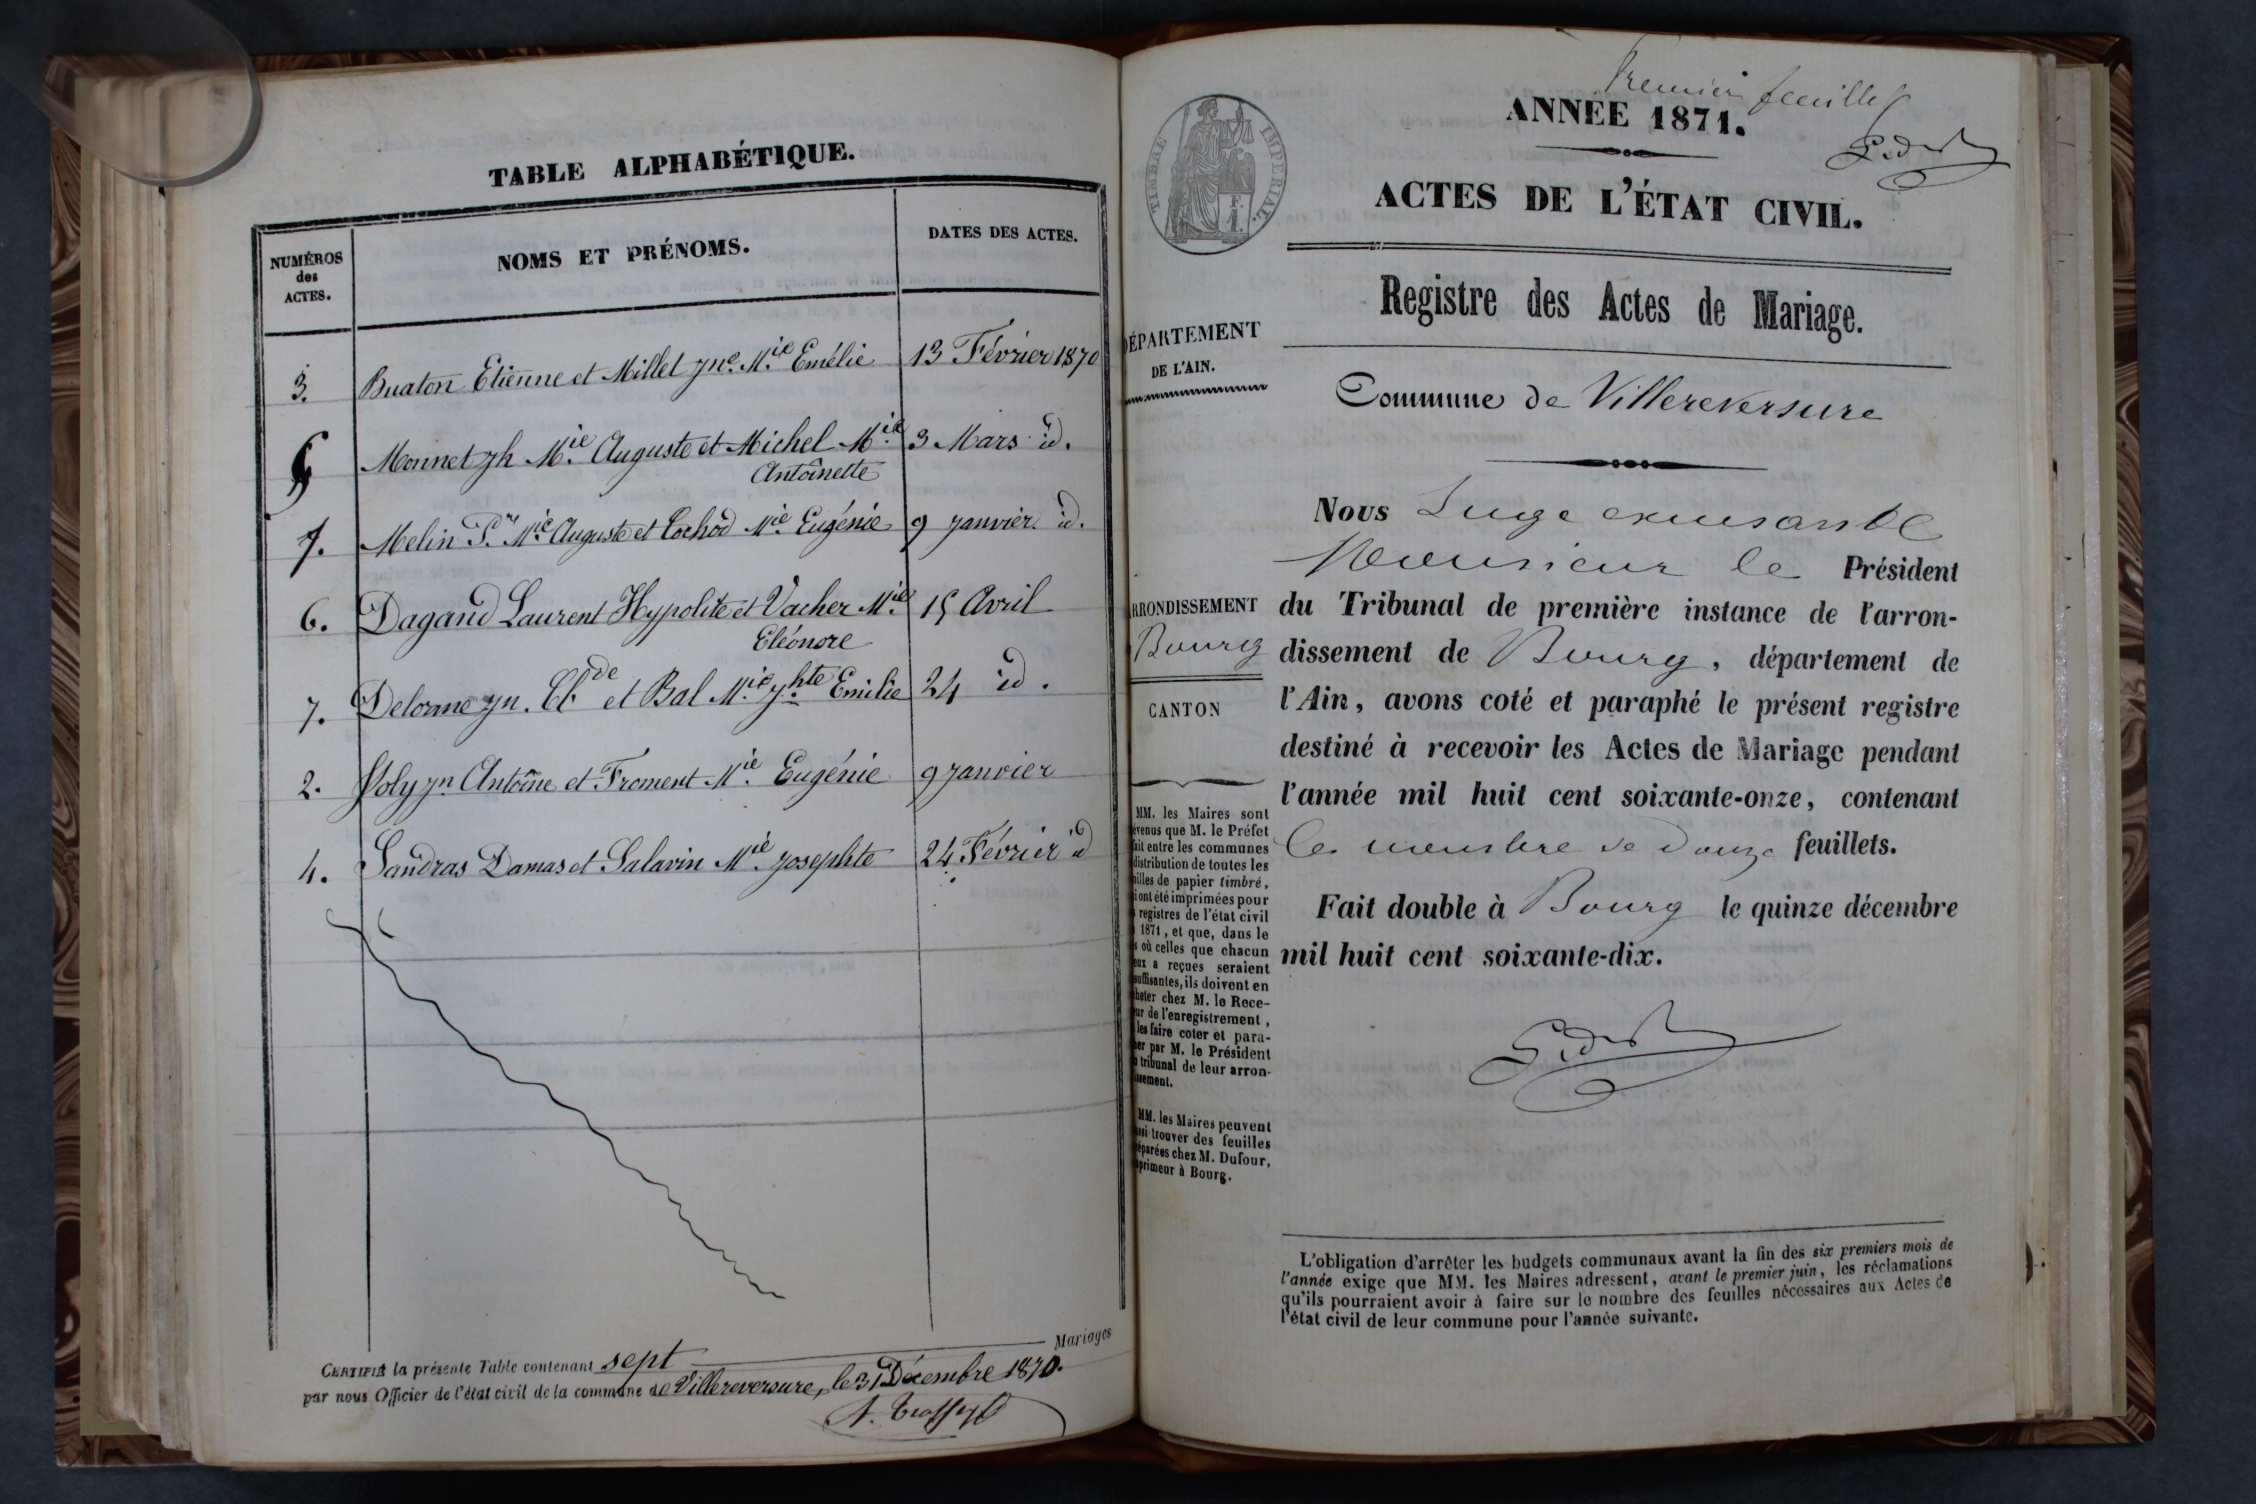 TABLE ALPHABÉTIQUE.
NUMÉROS
des
ACTES.
NOMS ET PRÉNOMS.
DATES DES ACTES.
3. Buaton Etienne et Millet Jne. Mie Emélie 13 Février 1870
5 Monnet Jh Mie Auguste et Michel Mie 3 Mars id.
Antoinette
1. Melin Mie Auguste et Cochod Mie Eugénie 9 Janvier id.
6. Dagand Laurent Hypolite et Vacher Mie 15 Avril
Eléonore
7. Delorme Jn. Cl.de et Bal Mie Jhte Emilie 24 id.
2. Joly Jn Antoine et Froment Mie Eugénie 9 Janvier
4. Sandras Damas et Salavin Mie Josephte 24 Février id
CERTIFIÉ la présente Table contenant sept Mariages
par nous Officier de l'état civil de la commune de Villereversure, le 31 Décembre 1870.
Premier feuillet
ANNÉE 1871.
TIMBRE IMPÉRIAL
ACTES DE L'ÉTAT CIVIL.
Registre des Actes de Mariage.
DÉPARTEMENT
DE L'AIN.
Commune de Villereversure
Nous Juge
Monsieur le Président
ARRONDISSEMENT
Bourg
du Tribunal de première instance de l'arron-
dissement de Bourg, département de
CANTON
l'Ain, avons coté et paraphé le présent registre
destiné à recevoir les Actes de Mariage pendant
l'année mil huit cent soixante-onze, contenant
le nombre de douze feuillets.
Fait double à Bourg le quinze décembre
mil huit cent soixante-dix.
MM. les Maires sont
que M. le Préfet
entre les communes
distribution de toutes les
de papier timbré,
ont été imprimées pour
registres de l'état civil
1871, et que, dans le
où celles que chacun
a reçues seraient
ils doivent en
chez M. le Rece-
de l'enregistrement,
les faire coter et para-
par M. le Président
tribunal de leur arron-
MM. les Maires peuvent
trouver des feuilles
chez M. Dufour,
à Bourg.
L'obligation d'arrêter les budgets communaux avant la fin des six premiers mois de
l'année exige que MM. les Maires adressent, avant le premier juin, les réclamations
qu'ils pourraient avoir à faire sur le nombre des feuilles nécessaires aux Actes de
l'état civil de leur commune pour l'année suivante.